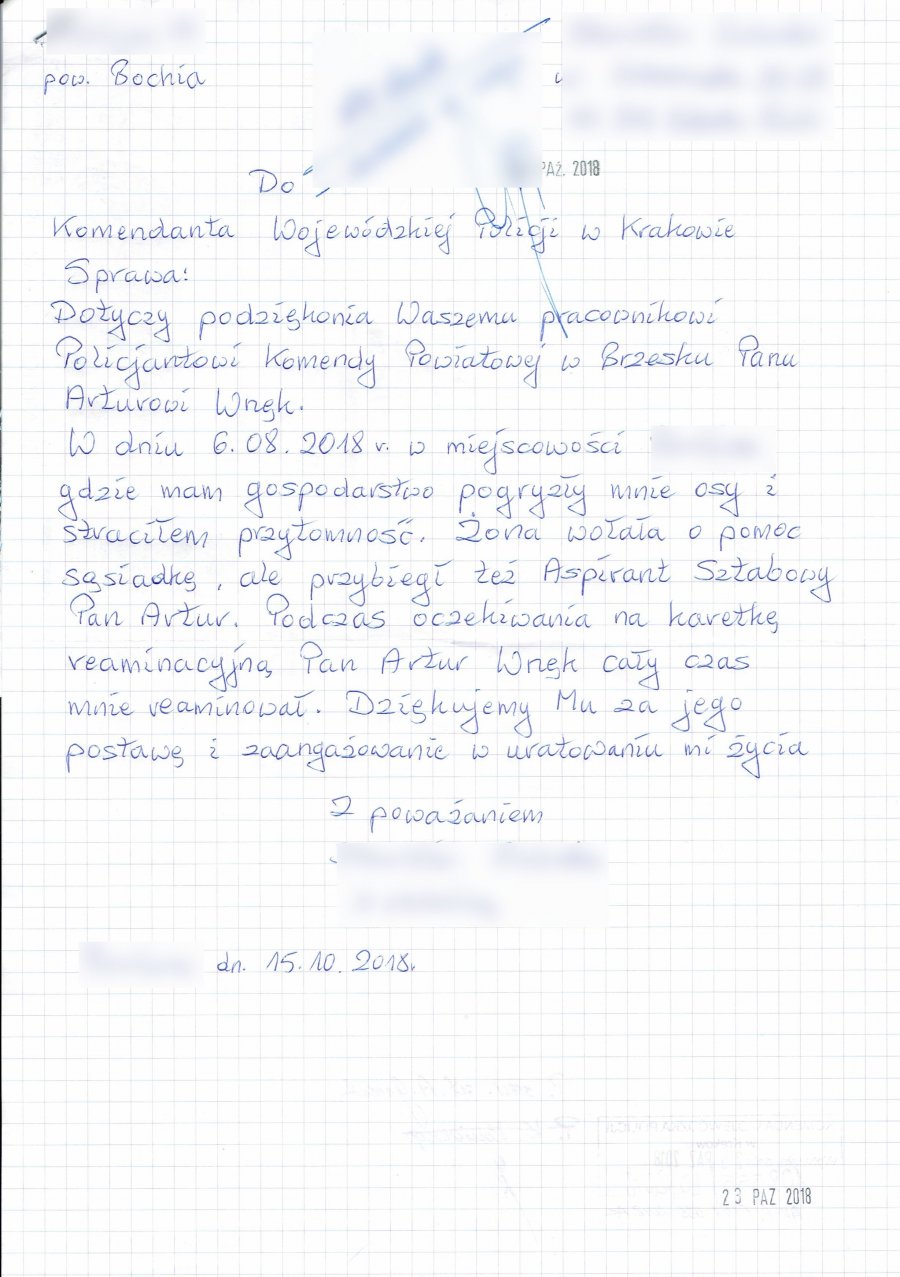 pow. Bochia
PAŹ. 2018
Do
Komendanta Wojewódzkiej Policji w Krakowie
Sprawa:
Dotyczy podziękonia Waszemu pracownikowi
Policjantowi Komendy Powiatowej w Brzesku Panu
Arturowi Wnęk.
W dniu 6.08.2018 r. w miejscowości
gdzie mam gospodarstwo pogryzły mnie osy i
straciłem przytomność. Żona wołała o pomoc
sąsiadkę, ale przybiegł też Aspirant Sztabowy
Pan Artur. Podczas oczekiwania na karetkę
reaminacyjną Pan Artur Wnęk cały czas
mnie reaminował. Dziękujemy Mu za jego
postawę i zaangażowanie w uratowaniu mi życia
Z poważaniem
dn. 15.10.2018r.
23 PAŹ 2018